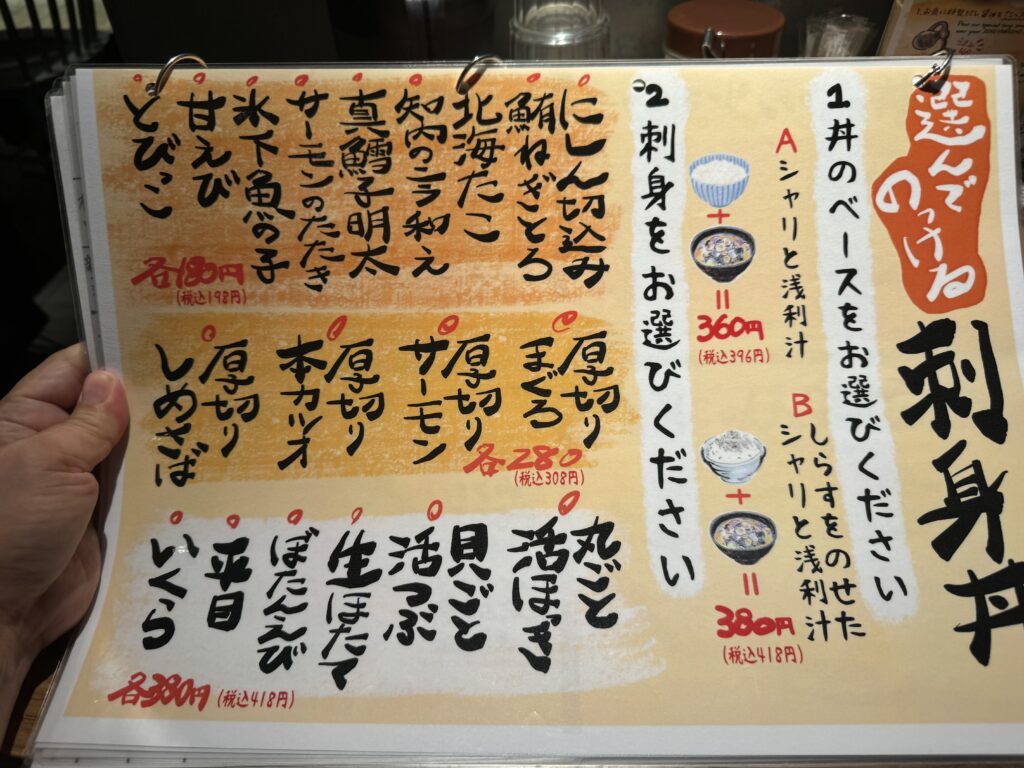 選んで
のっける
刺身丼
1 丼のベースをお選びください
A シャリと浅利汁
360円
(税込396円)
B しらすをのせた
シャリと浅利汁
380円
(税込418円)
2 刺身をお選びください
にしん切込み
鮪ねぎとろ
北海たこ
知内のニラ和え
真鱈子明太
サーモンのたたき
氷下魚の子
甘えび
とびっこ
各180円
(税込198円)
厚切り
まぐろ
厚切り
サーモン
厚切り
本カツオ
厚切り
しめさば
各280
(税込308円)
丸ごと
活ほっき
貝ごと
活つぶ
生ほたて
ぼたんえび
平目
いくら
各380円
(税込418円)